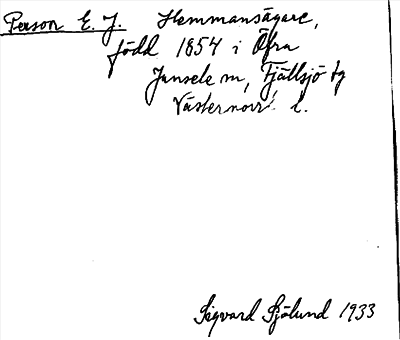 Persson E. J. Hemmansägare,
född 1854 i Öfra
Junsele sn, Fjällsjö tg
Västernorr. l.
Sigvard Sjölund 1933